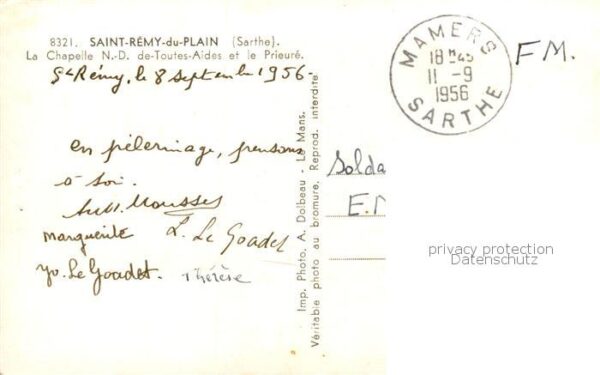 8321. SAINT-RÉMY-du-PLAIN (Sarthe).
La Chapelle N.-D. de-Toutes-Aides et le Prieuré.
St Rémy, le 8 Septembre 1956.
en pèlerinage, pensons
à soi.
Mousset
Marguerite L. Le Goadet
yv. Le Goadet. Thérèse
Imp. Photo. A. Dolbeau - Le Mans.
Véritable photo au bromure. Reprod. interdite
MAMERS
18H45
11-9
1956
SARTHE
F.M.
Solda
privacy protection
Datenschutz